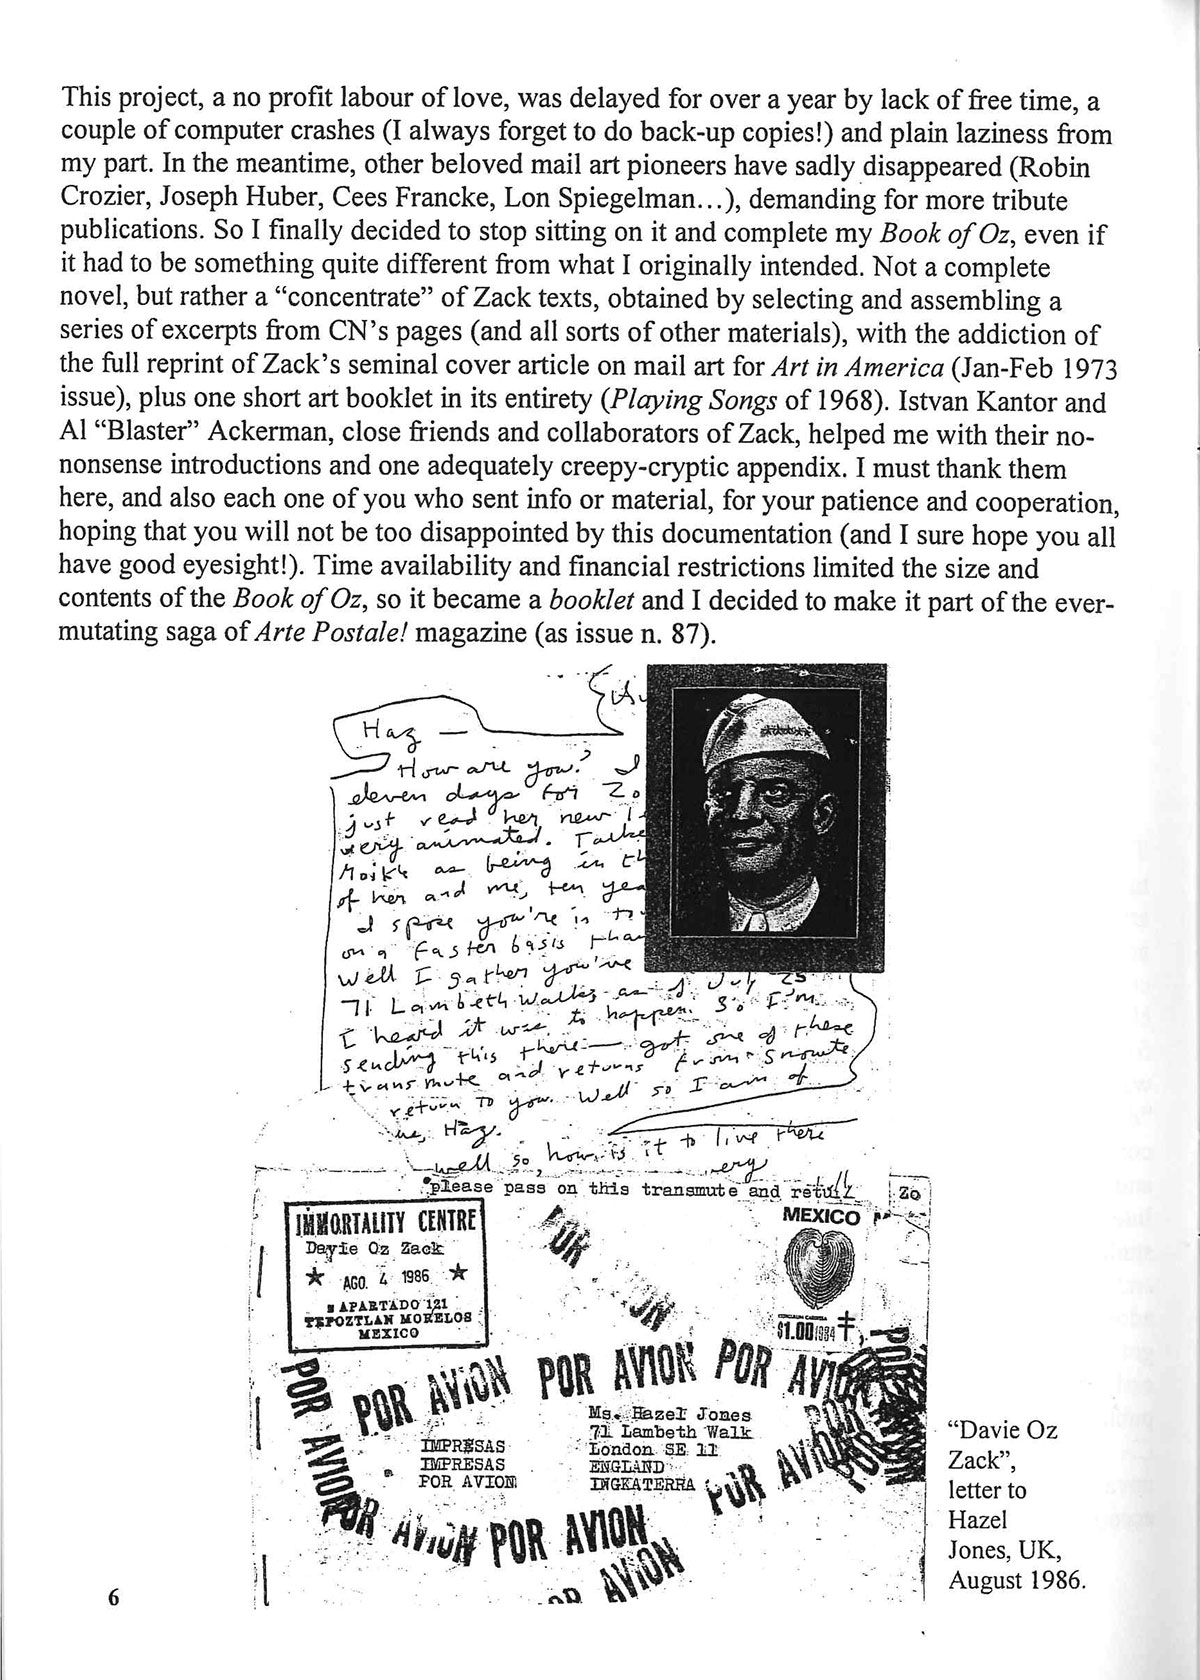 This project, a no profit labour of love, was delayed for over a year by lack of free time, a
couple of computer crashes (I always forget to do back-up copies!) and plain laziness from
my part. In the meantime, other beloved mail art pioneers have sadly disappeared (Robin
Crozier, Joseph Huber, Cees Francke, Lon Spiegelman…), demanding for more tribute
publications. So I finally decided to stop sitting on it and complete my Book of Oz, even if
it had to be something quite different from what I originally intended. Not a complete
novel, but rather a “concentrate” of Zack texts, obtained by selecting and assembling a
series of excerpts from CN’s pages (and all sorts of other materials), with the addiction of
the full reprint of Zack’s seminal cover article on mail art for Art in America (Jan-Feb 1973
issue), plus one short art booklet in its entirety (Playing Songs of 1968). Istvan Kantor and
Al “Blaster” Ackerman, close friends and collaborators of Zack, helped me with their no-
nonsense introductions and one adequately creepy-cryptic appendix. I must thank them
here, and also each one of you who sent info or material, for your patience and cooperation,
hoping that you will not be too disappointed by this documentation (and I sure hope you all
have good eyesight!). Time availability and financial restrictions limited the size and
contents of the Book of Oz, so it became a booklet and I decided to make it part of the ever-
mutating saga of Arte Postale! magazine (as issue n. 87).
Haz —
How are you? I
eleven days for Zo
just read her new
very animated. Talke
as being in th
of her and me, ten yea
I spose you're in
on a faster basis than
Well I gather you've
71 Lambeth Walk as of July 25
I heard it was to happen. So I'm
sending this there — got one of these
transmute and returns from
return to you. Well so I am of
Haz.
well so, how is it to live there
very
please pass on this transmute and return
Zo
IMMORTALITY CENTRE
Davie Oz Zack
★ AGO. 4 1986 ★
APARTADO 121
TEPOZTLAN MORELOS
MEXICO
MEXICO
$1.00 1984
POR
POR AVION
POR AVION POR AVION POR AVION
Ms. Hazel Jones
71 Lambeth Walk
London SE 11
ENGLAND
INGKATERRA
IMPRESAS
IMPRESAS
POR AVION
POR AVION
POR AVION POR AVION
POR AVION
“Davie Oz
Zack”,
letter to
Hazel
Jones, UK,
August 1986.
6